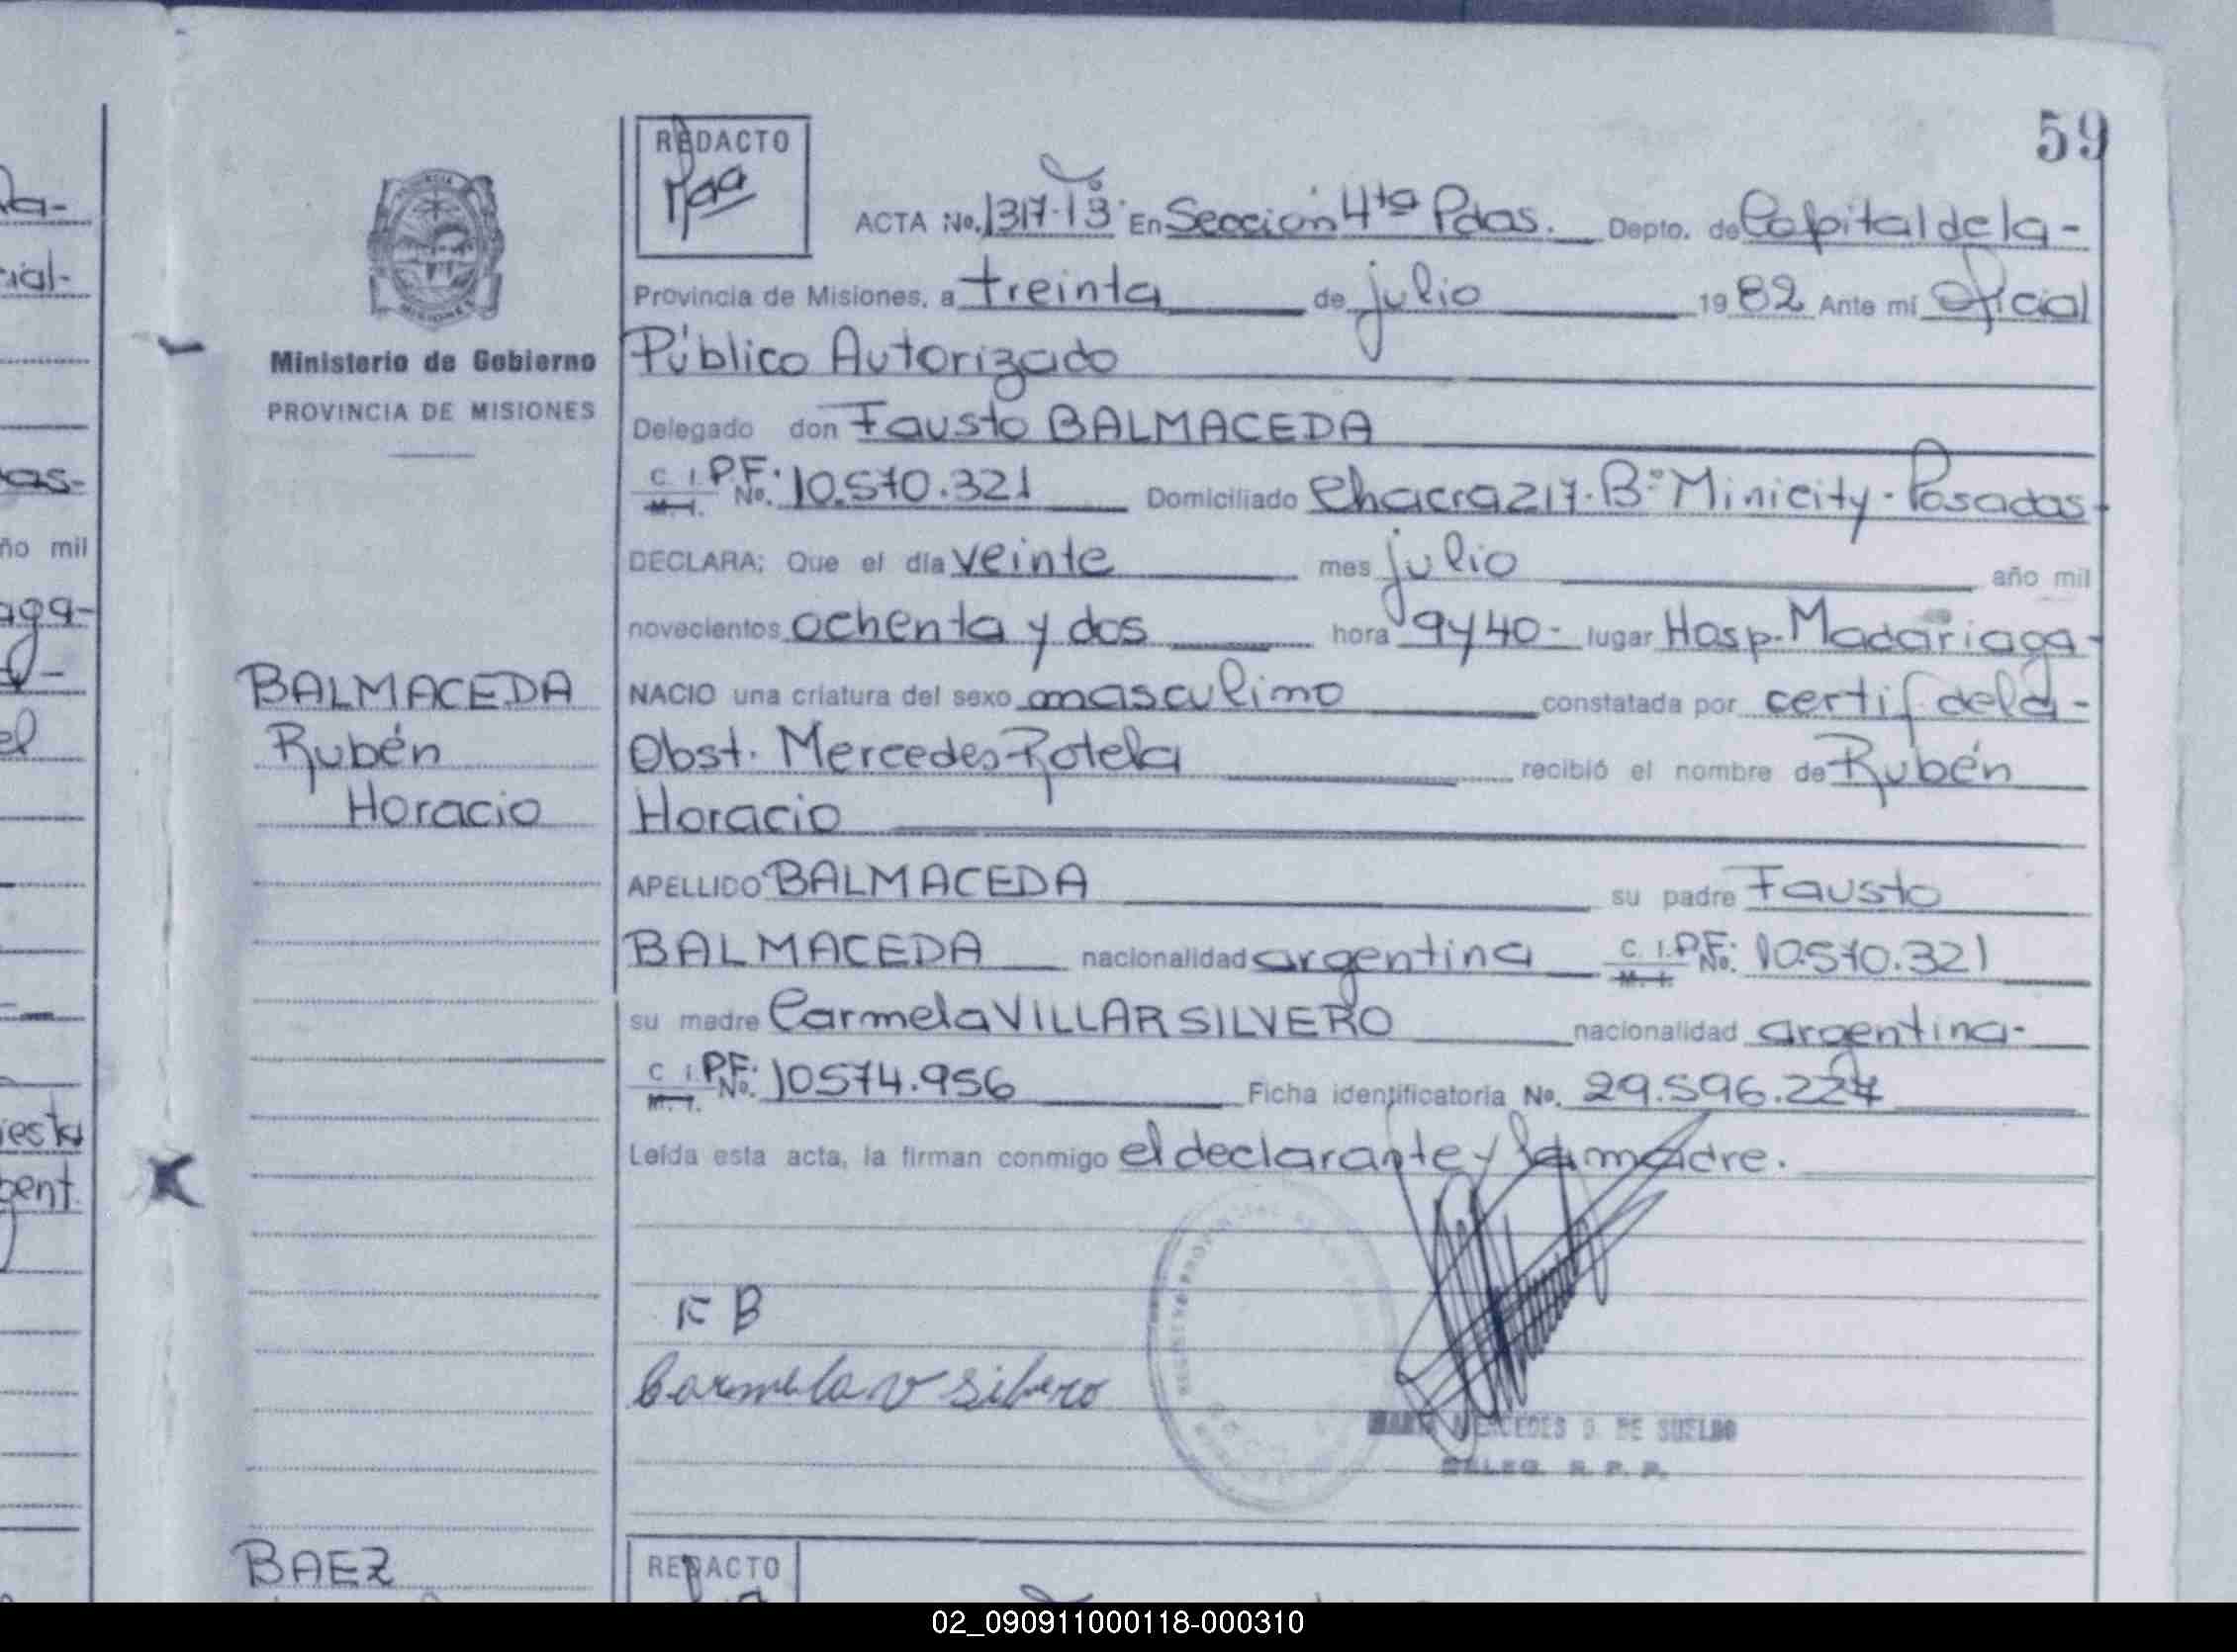 59
REDACTO
ACTA No. 1317-Iº3· En Sección 4ta Pdas. Depto. de Capital de la-
Provincia de Misiones, a treinta de julio 1982 Ante mí Oficial
Público Autorizado
Delegado don Fausto BALMACEDA
C. I. P.F. M. I. No. 10.570.321 Domiciliado Chacra 217-Bº Minicity-Posadas-
DECLARA: Que el día veinte mes julio año mil
novecientos ochenta y dos hora 9y40- lugar Hosp. Madariaga-
NACIO una criatura del sexo masculino constatada por certif de la-
Obst. Mercedes Rotela recibió el nombre de Rubén
Horacio
APELLIDO BALMACEDA su padre Fausto
BALMACEDA nacionalidad argentina C. I. P.F. M. I. No. 10.570.321
su madre Carmela VILLAR SILVERO nacionalidad argentina-
C. I. P.F. M. I. No. 10574.956 Ficha identificatoria No. 29.596.227
Leída esta acta, la firman conmigo el declarante y la madre.
F B
Carmela V Silvero
MERCEDES G. DE SUELDO
DELEG. R. P. P.
Ministerio de Gobierno
PROVINCIA DE MISIONES
BALMACEDA
Rubén
Horacio
BAEZ
REDACTO
02_090911000118-000310